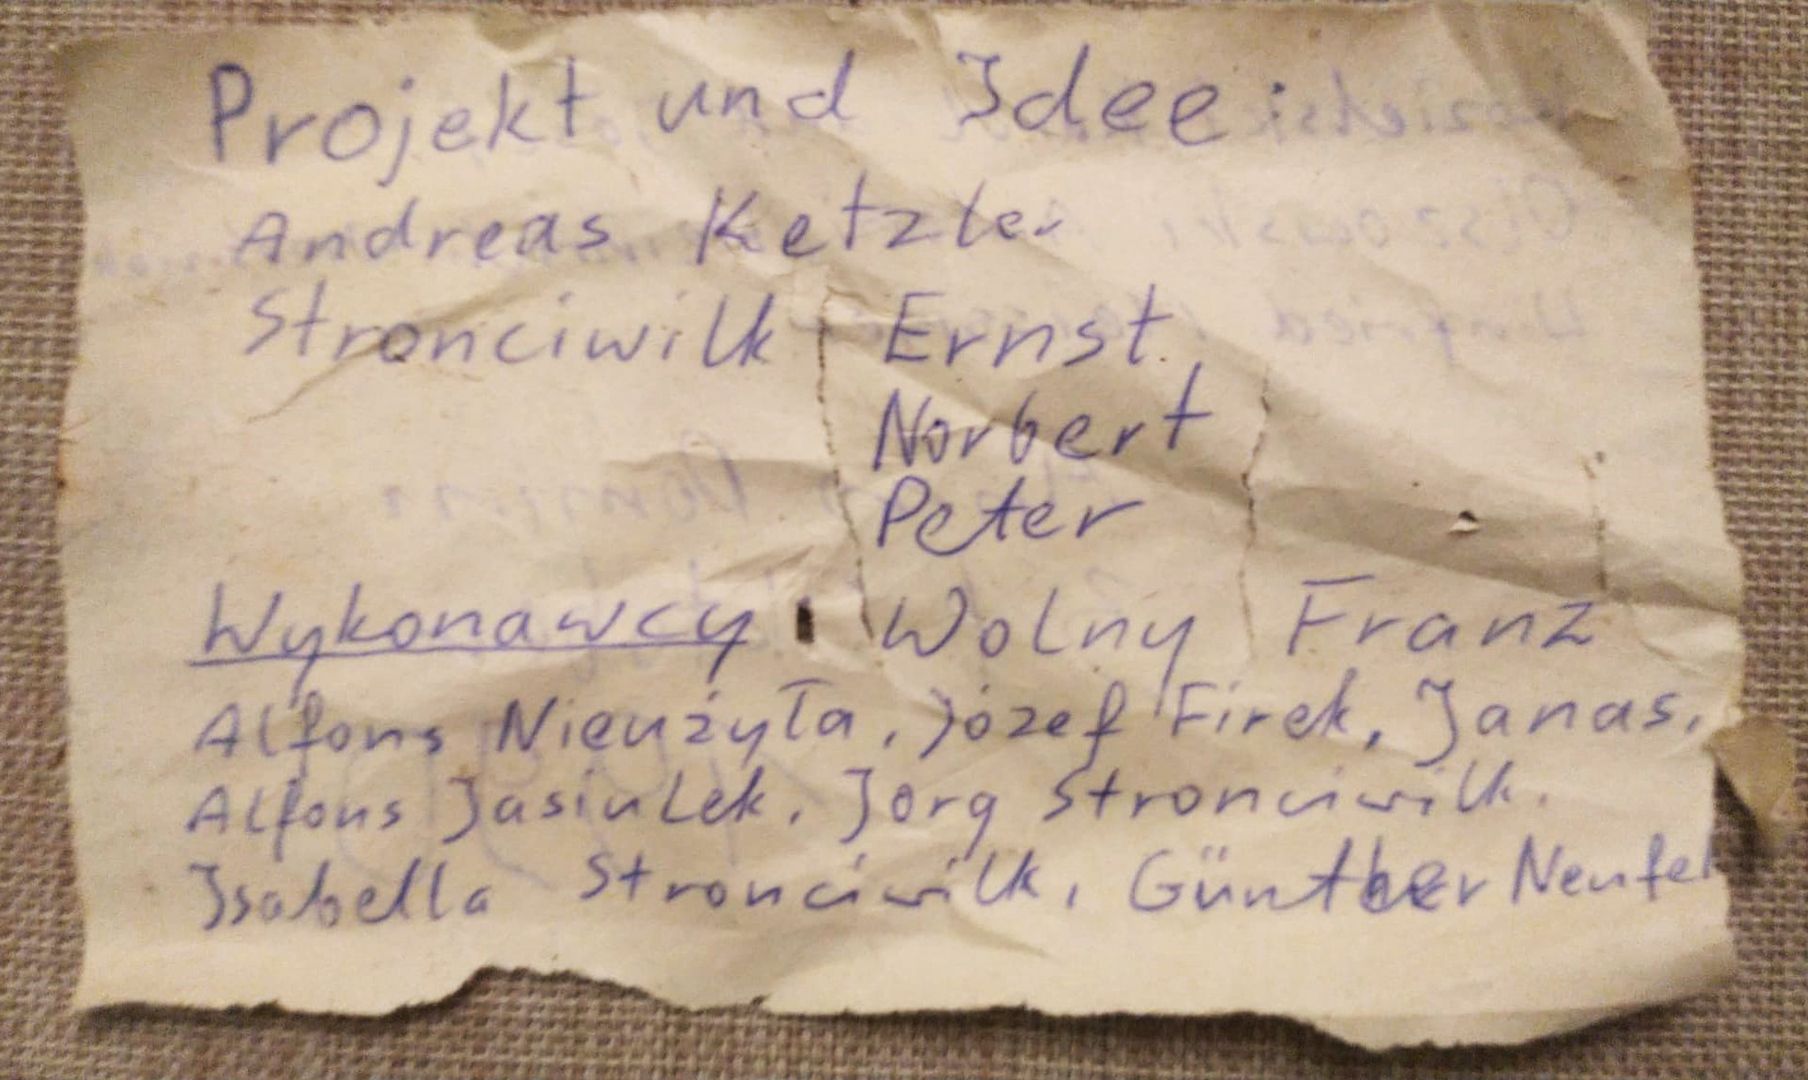 Projekt und Idee:
Andreas Ketzler
Stronciwilk Ernst
Norbert
Peter
Wykonawcy: Wolny Franz
Alfons Nieużyła, Józef Firek, Janas,
Alfons Jasiulek, Jorg Stronciwilk.
Isabella Stronciwilk, Günther Neufel